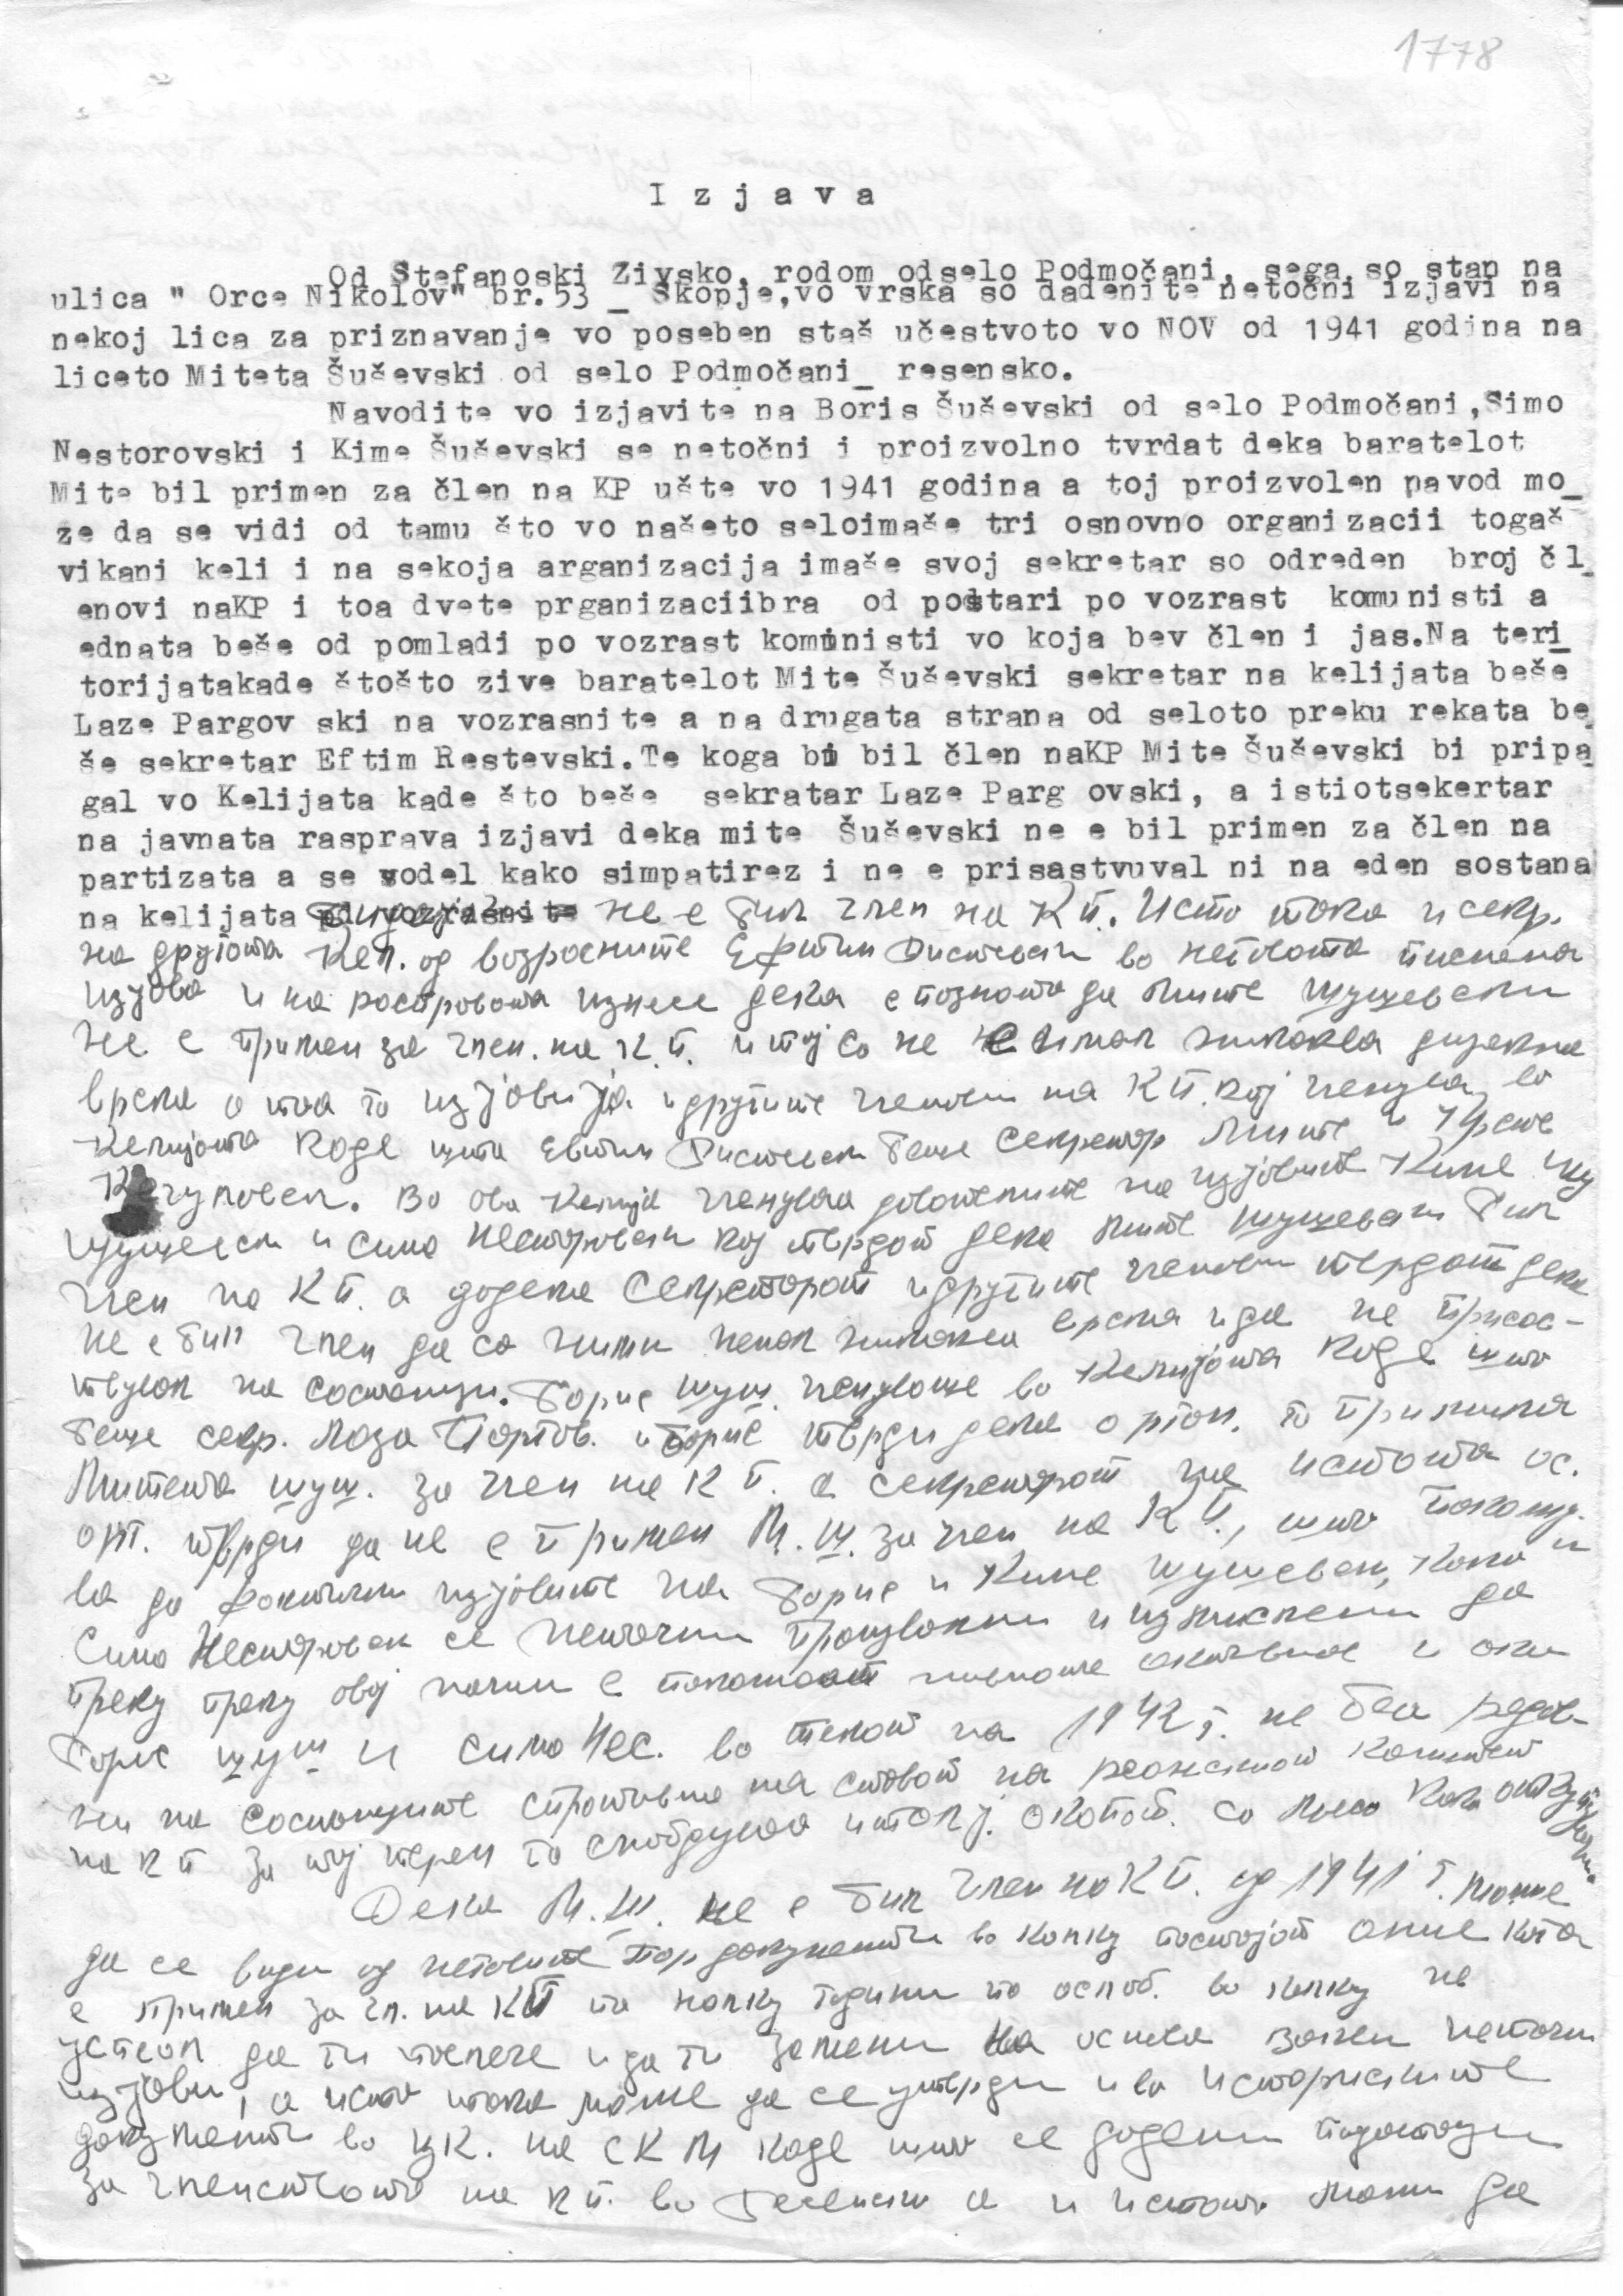 1778
I z j a v a
Od Stefanoski Zivsko, rodom odselo Podmočani, sega so stan na
ulica " Orce Nikolov" br.53 _ Skopje,vo vrska so dadenite netočni izjavi na
nekoj lica za priznavanje vo poseben staš učestvoto vo NOV od 1941 godina na
liceto Miteta Šuševski od selo Podmočani_ resensko.
Navodite vo izjavite na Boris Šuševski od selo Podmočani,Simo
Nestorovski i Kime Šuševski se netočni i proizvolno tvrdat deka baratelot
Mite bil primen za člen na KP ušte vo 1941 godina a toj proizvolen navod mo_
ze da se vidi od tamu što vo našeto seloimaše tri osnovno organizacii togaš
vikani keli i na sekoja arganizacija imaše svoj sekretar so odreden broj čl_
enovi naKP i toa dvete prganizaciibra od postari po vozrast komunisti a
ednata beše od pomladi po vozrast komunisti vo koja bev člen i jas.Na teri_
torijatakade štošto zive baratelot Mite Šuševski sekretar na kelijata beše
Laze Pargov ski na vozrasnite a na drugata strana od seloto preku rekata be_
še sekretar Eftim Restevski.Te koga bi bil člen naKP Mite Šuševski bi pripa_
gal vo Kelijata kade što beše sekratar Laze Parg ovski, a istiotsekertar
na javnata rasprava izjavi deka mite Šuševski ne e bil primen za člen na
partizata a se vodel kako simpatirez i ne e prisastvuval ni na eden sostana
na kelijata не е бил член на К П. Исто така и секр.
на другата Кел. од возрасните Ефтим во неговата писмена
изјава и на расправата изнесе дека е познато да Мите Шушевски
не е примен за член. на К.П. и тој со не имал никаква дирекна
врска а тоа го изјавија и другите членови на К П. кој членуваа во
Келијата каде што Евтим беше Секретар Мите и Крсте
Во ова Келија членуваа давателите на изјавите Киме Шу
шушевски и Симо Несторовски кој тврдат дека Мите Шушевски бил
член на К П. а додека Секретарот и другите членови тврдат дека
не е бил член да со нив немал никаква врска и да не присас-
твувал на состаноци. Борис Шуш. членуваше во Келијата каде што
беше секр. Лазо Паргов. и Борис тврди дека орган. го примила
Митета Шуш. за член на К П. а секретарот на истата ос.
орг. тврди да не е примен М.Ш. за член на К П., што покажу-
ва да фактички изјавите на Борис и Киме Шушевски, како и
Симо Несторовски се неточни произволни и измислени да
преку преку овој начин
Борис Шуш и Симо Нес. во текот на 1942 г. не беа редов-
ни на состаноците спротивно на ставот на комитет
на К П за тој терен го
Дека М.Ш. не е бил член на К П. од 1941 г. може
да се види од неговите пар документи во колку постојат кога
е примен за чл. на КП по колку години по ослоб. во колку не
успеал да ги повлече и да ги замени на основа неточни
изјави, а исто така може да се утврди и во историските
документи во ЦК. на СКМ каде што се дадени податоци
за членството на К П. во Ресенско а и истото може да